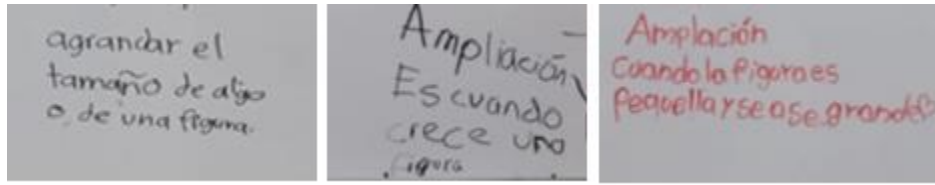 agrandar el
tamaño de algo
o de una figura.
Ampliación
Es cuando
crece una
figura
Amplación
Cuando la figura es
pequella y se ase grande